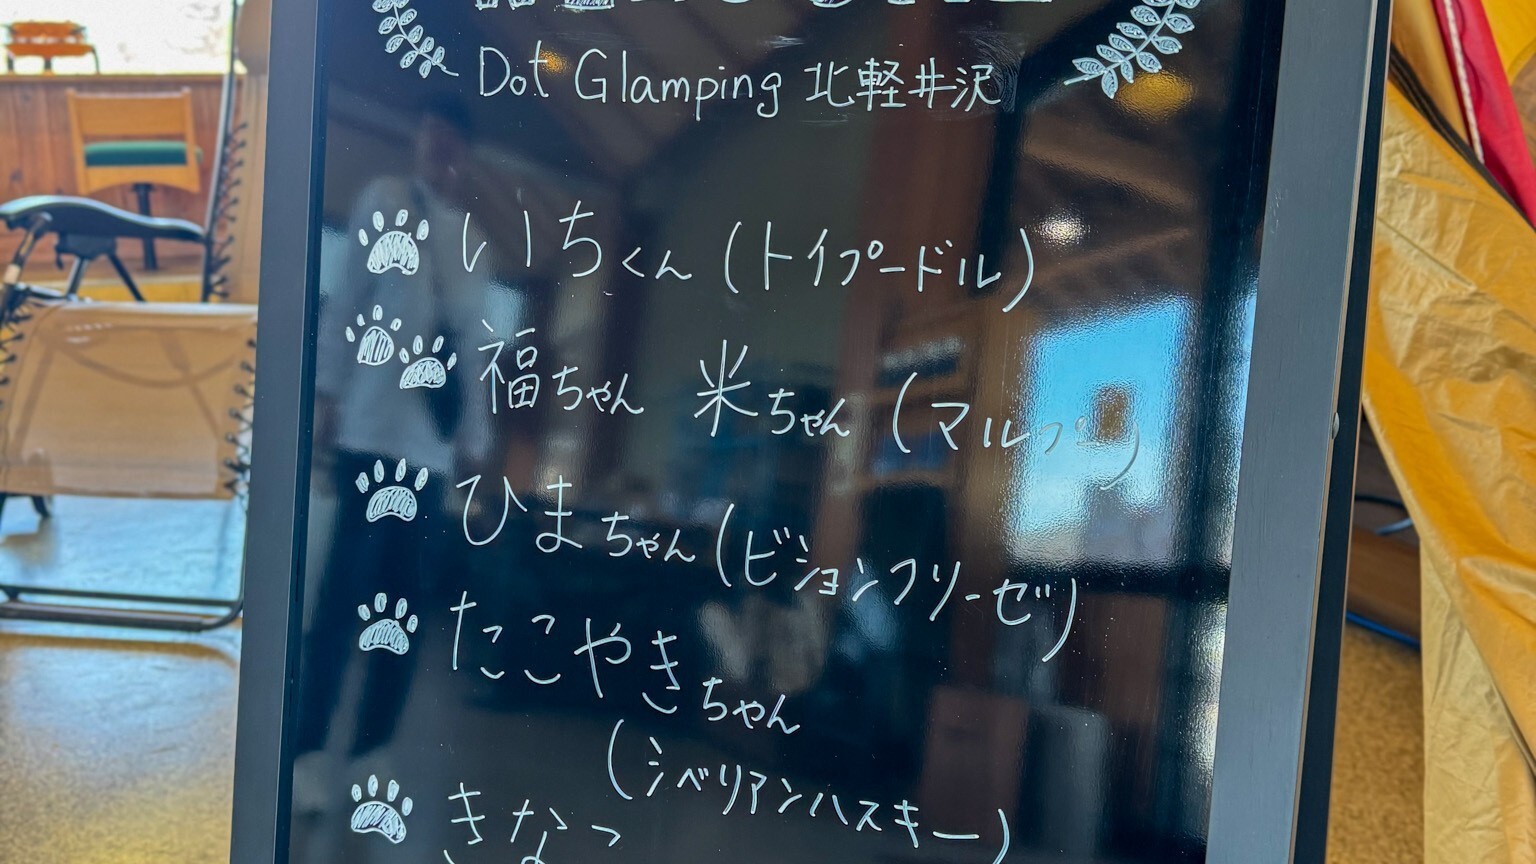 Dot Glamping 北軽井沢
いちくん (トイプードル)
福ちゃん 米ちゃん (マルプー)
ひまちゃん (ビションフリーゼ)
たこやきちゃん
(シベリアンハスキー)
きなこ